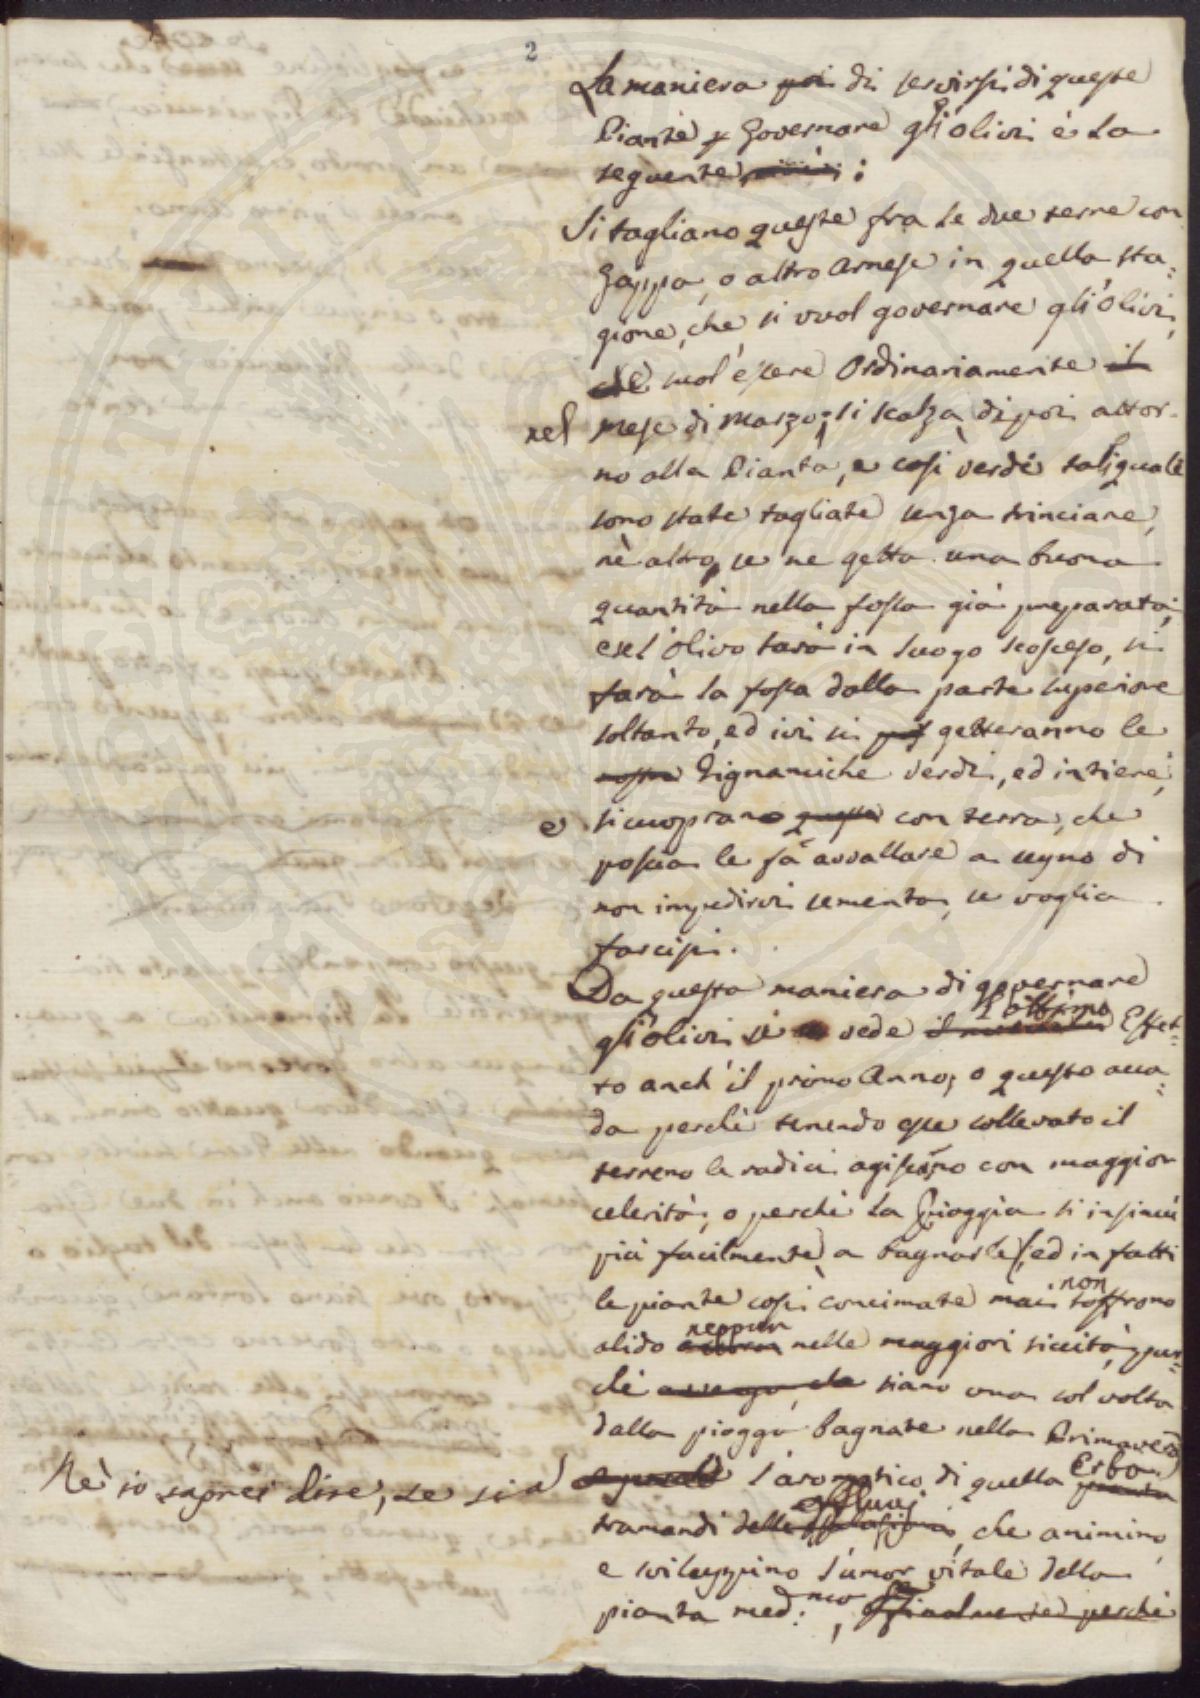 2
La maniera poi di servirsi di queste
Piante p Governare gl'olivi è la
seguente :
Si tagliano queste fra le due terre con
Zappa, o altro Arnese in quella sta=
gione, che si vuol governare gl'Olivi,
che suol essere Ordinariamente il
nel mese di Marzo; si scalza dipoi attor-
no alla Pianta, e così verdi tali quali
sono state tagliate senza trinciare,
nè altro, se ne getta una buona
quantità nella fossa già preparata;
e se l'Olivo sarà in luogo scosceso, si
farà la fossa dalla parte superiore
soltanto, ed ivi si getteranno le
nostre Lignamiche verdi, ed intiere,
e si cuoprano queste con terra, che
poscia le fà avvallare a segno di
non impedirvi sementa, se voglia
farcisi.
Da questa maniera di governare
l'ottimo
gl'olivi si vede il Effet=
to anch' il primo Anno; o questo acca=
da perchè tenendo esse sollevato il
terreno le radici agiscano con maggior
celerità; o perchè la pioggia si insinui
più facilmente a bagnarle, ed in fatti
non
le piante così concimate mai soffrono
neppur
alido ancora nelle maggiori siccità, pur=
chè siano una sol volta
dalla pioggia bagnate nella Primavera
Erba
Nè io saprei dire, se sia l'aromatico di quella pianta
effluvi
tramandi delle esalazioni, che animino,
e sviluppino l'umor vitale della
pianta med:ma, finalmente perchè